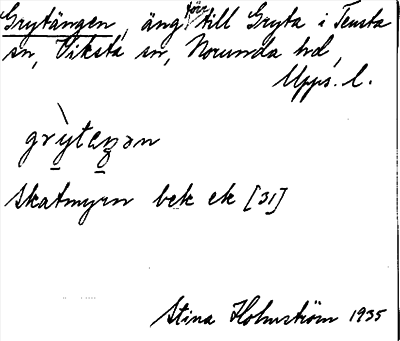 Grytängen, äng förr till Gryta i Tensta
sn, Viksta sn, Norunda hd,
Upps. l.
grỳtaŋən
Skatmyrn bek ek [31]
Stina Holmström 1935